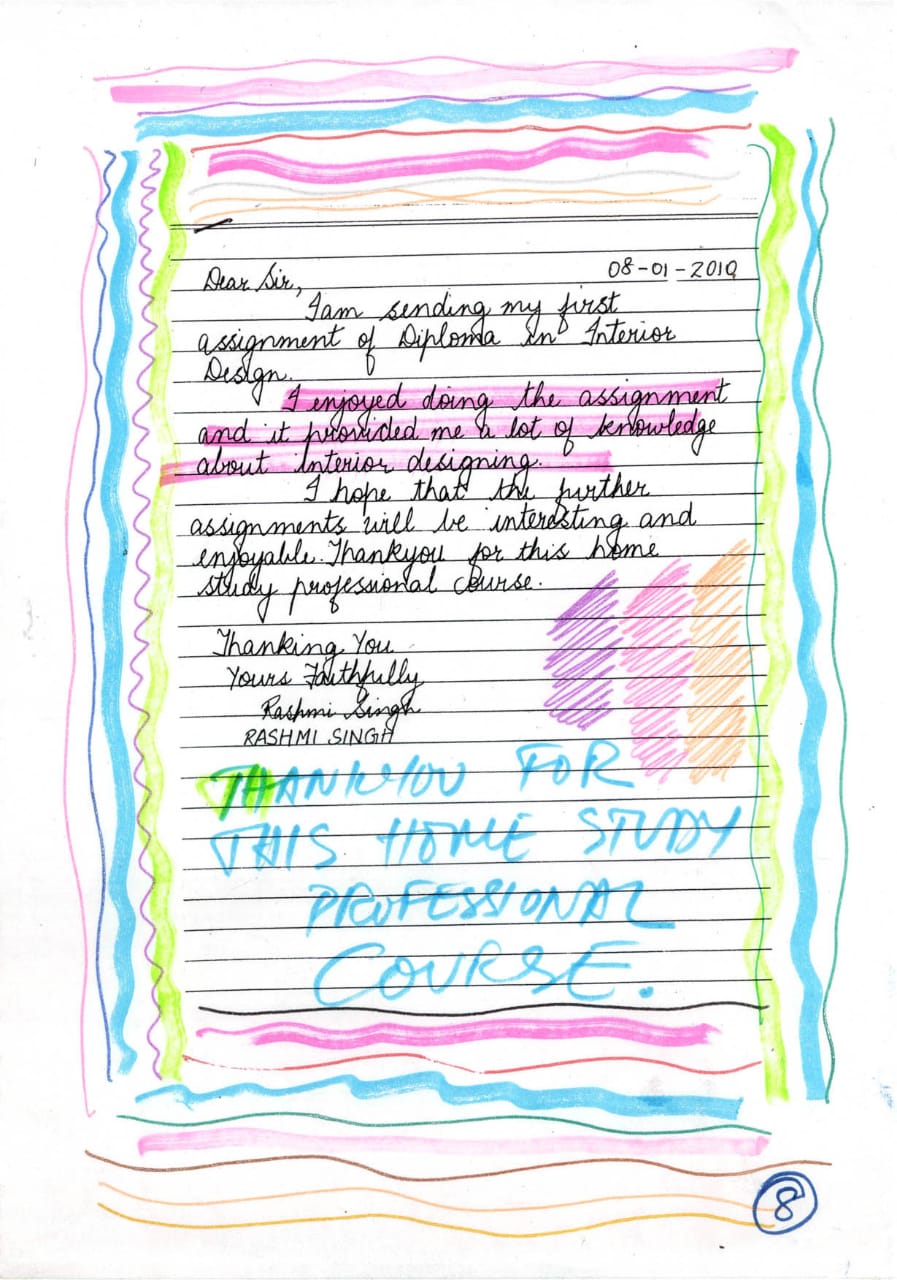 08-01-2010
Dear Sir,
I am sending my first
assignment of Diploma in Interior
Design.
I enjoyed doing the assignment
and it provided me a lot of knowledge
about interior designing.
I hope that the further
assignments will be interesting and
enjoyable. Thankyou for this home
study professional course.
Thanking You
Yours Faithfully
Rashmi Singh
RASHMI SINGH
THANKYOU FOR
THIS HOME STUDY
PROFESSIONAL
COURSE.
8